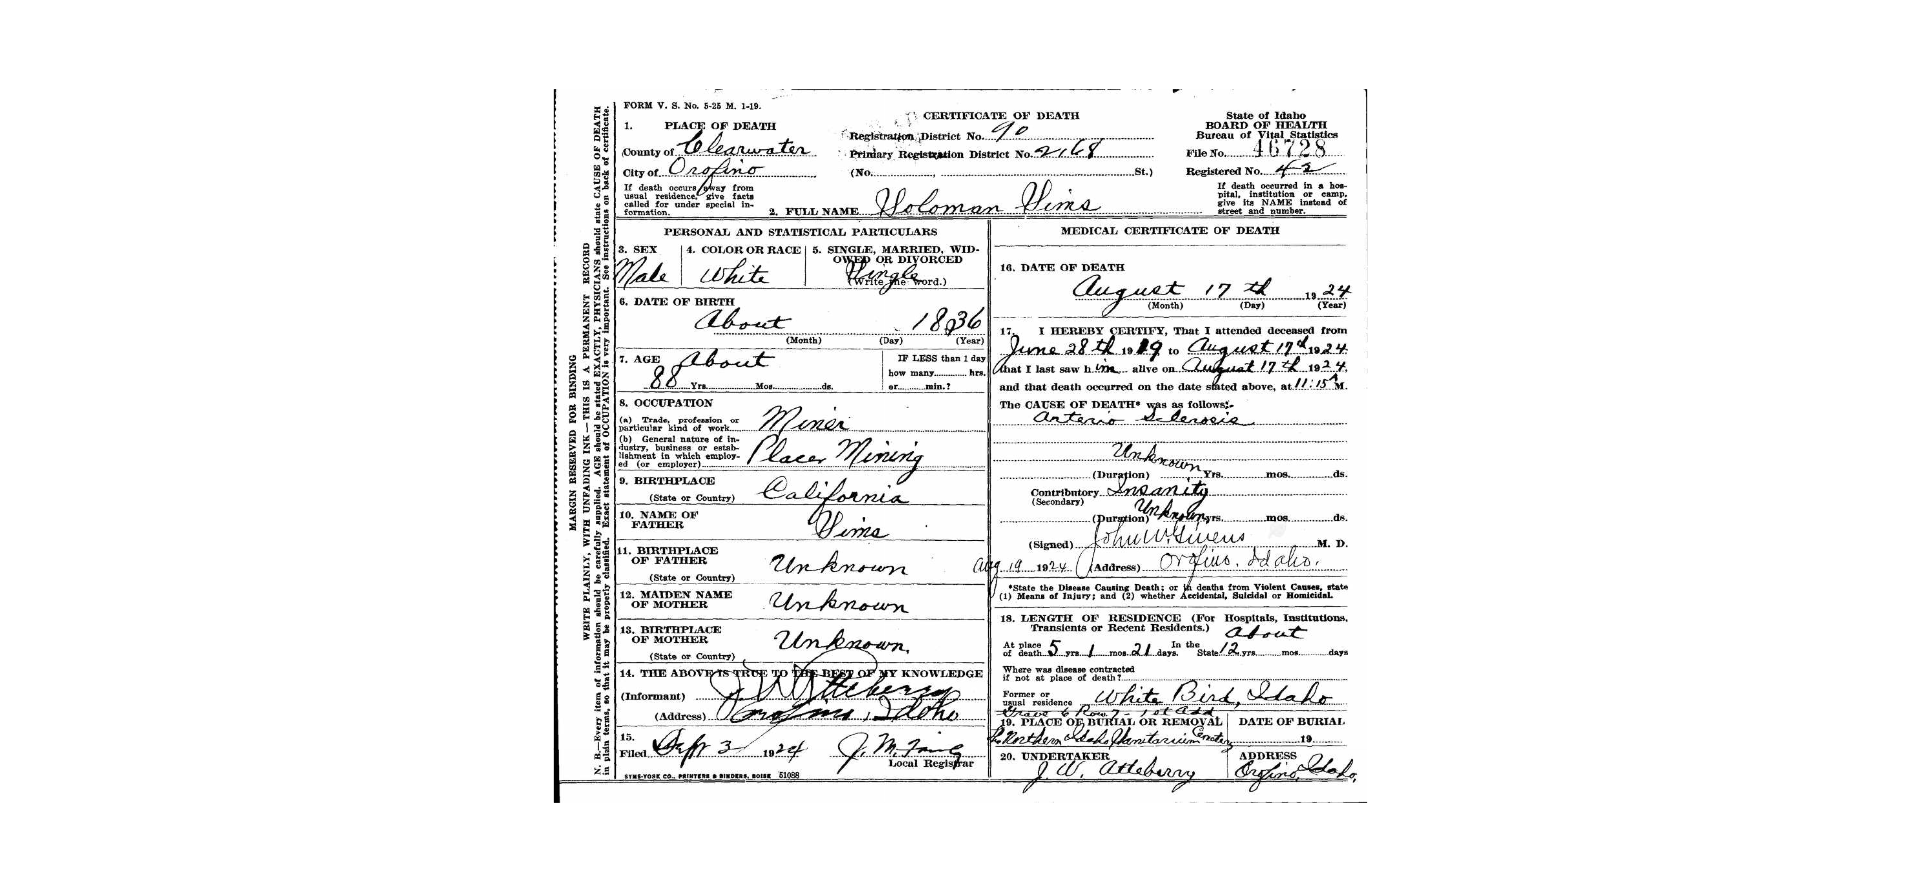 FORM V. S. No. 5-25 M. 1-19.
CERTIFICATE OF DEATH
State of Idaho
BOARD OF HEALTH
Bureau of Vital Statistics
File No. 46728
Registered No. 42
If death occurred in a hos-
pital, institution or camp,
give its NAME instead of
street and number.
1. PLACE OF DEATH
County of Clearwater
City of Orofino
Registration District No. 90
Primary Registration District No. 2168
(No. , St.)
If death occurs away from
usual residence, give facts
called for under special in-
formation.
2. FULL NAME Soloman Sims
MARGIN RESERVED FOR BINDING
WRITE PLAINLY, WITH UNFADING INK—THIS IS A PERMANENT RECORD
N. B.—Every item of information should be carefully supplied. AGE should be stated EXACTLY, PHYSICIANS should state CAUSE OF DEATH
in plain terms, so that it may be properly classified. Exact statement of OCCUPATION is very important. See instructions on back of certificate.
PERSONAL AND STATISTICAL PARTICULARS
3. SEX
Male
4. COLOR OR RACE
White
5. SINGLE, MARRIED, WID-
OWED OR DIVORCED
Single
(Write the word.)
6. DATE OF BIRTH
About 1836
(Month) (Day) (Year)
7. AGE About
88 Yrs. Mos. ds.
IF LESS than 1 day
how many hrs.
or min.?
8. OCCUPATION
(a) Trade, profession or
particular kind of work Miner
(b) General nature of in-
dustry, business or estab-
lishment in which employ-
ed (or employer) Placer Mining
9. BIRTHPLACE
(State or Country) California
10. NAME OF
FATHER Sims
11. BIRTHPLACE
OF FATHER Unknown
(State or Country)
12. MAIDEN NAME
OF MOTHER Unknown
13. BIRTHPLACE
OF MOTHER Unknown
(State or Country)
14. THE ABOVE IS TRUE TO THE BEST OF MY KNOWLEDGE
(Informant) J. W. Atteberry
(Address) Orofino, Idaho
15.
Filed Sept 3 1924 J. M.
Local Registrar
SYMS-YORK CO., PRINTERS & BINDERS, BOISE 51088
MEDICAL CERTIFICATE OF DEATH
16. DATE OF DEATH
August 17 th 1924
(Month) (Day) (Year)
17. I HEREBY CERTIFY, That I attended deceased from
June 28th 1919 to August 17th 1924
that I last saw him alive on August 17th 1924
and that death occurred on the date stated above, at 11:15 A M.
The CAUSE OF DEATH* was as follows:-
Arterio Sclerosis
Unknown
(Duration) Yrs. mos. ds.
Contributory Insanity
(Secondary)
(Duration) Unknown yrs. mos. ds.
(Signed) John W. Givens M. D.
Aug 19 1924 (Address) Orofino, Idaho.
*State the Disease Causing Death; or in deaths from Violent Causes, state
(1) Means of Injury; and (2) whether Accidental, Suicidal or Homicidal.
18. LENGTH OF RESIDENCE (For Hospitals, Institutions,
Transients or Recent Residents.) About
At place of death 5 yrs. 1 mos. 21 days. In the State 12 yrs. mos. days
Where was disease contracted
if not at place of death?
Former or
usual residence White Bird, Idaho
Grave 6 Row 7 - 1st Add
19. PLACE OF BURIAL OR REMOVAL
Northern Idaho Sanitarium Cemetery
DATE OF BURIAL
19
20. UNDERTAKER
J. W. Atteberry
ADDRESS
Orofino, Idaho,